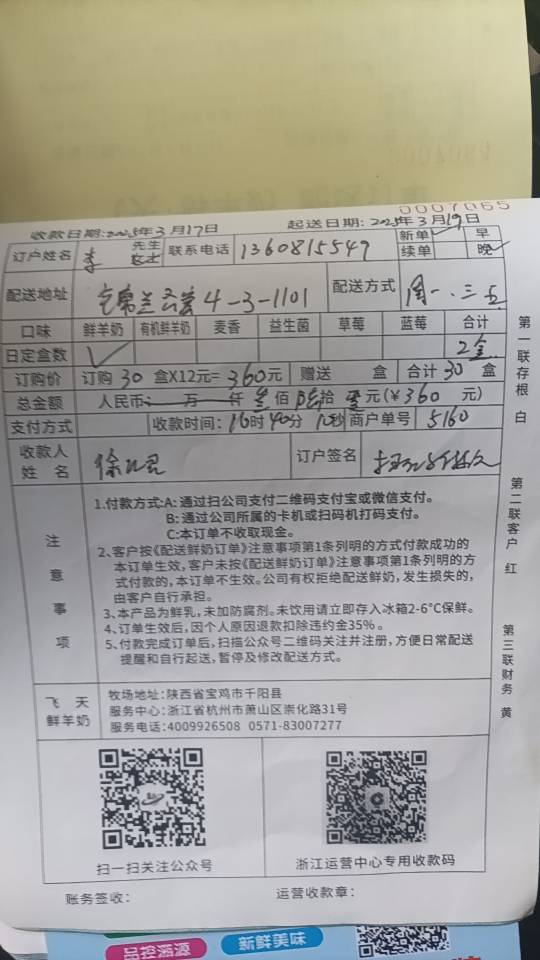 0007065
收款日期:2025年3月17日 起送日期:2025年3月19日
订户姓名 李 先生 女士 联系电话 1360815549 新单 早
续单 晚
配送地址 4-3-1101 配送方式 周一、三、五
口味 鲜羊奶 有机鲜羊奶 麦香 益生菌 草莓 蓝莓 合计
日定盒数 ✓ 2盒
订购价 订购30盒X12元=360元 赠送 盒 合计30盒
总金额 人民币: 万 仟 叁佰陆拾零元(¥360 元)
支付方式 收款时间:16时40分 秒 商户单号 5160
收款人
姓名 徐 订户签名
注意事项
1.付款方式:A:通过扫公司支付二维码支付宝或微信支付。
B:通过公司所属的卡机或扫码机打码支付。
C:本订单不收取现金。
2、客户按《配送鲜奶订单》注意事项第1条列明的方式付款成功的
本订单生效,客户未按《配送鲜奶订单》注意事项第1条列明的方
式付款的,本订单不生效。公司有权拒绝配送鲜奶,发生损失的,
由客户自行承担。
3、本产品为鲜乳,未加防腐剂。未饮用请立即存入冰箱2-6°C保鲜。
4、订单生效后,因个人原因退款扣除违约金35%。
5、付款完成订单后,扫描公众号二维码关注并注册,方便日常配送
提醒和自行起送,暂停及修改配送方式。
飞天
鲜羊奶
牧场地址:陕西省宝鸡市千阳县
服务中心:浙江省杭州市萧山区崇化路31号
服务电话:4009926508 0571-83007277
扫一扫关注公众号 浙江运营中心专用收款码
账务签收: 运营收款章:
第一联存根 白
第二联客户 红
第三联财务 黄
品控溯源 新鲜美味